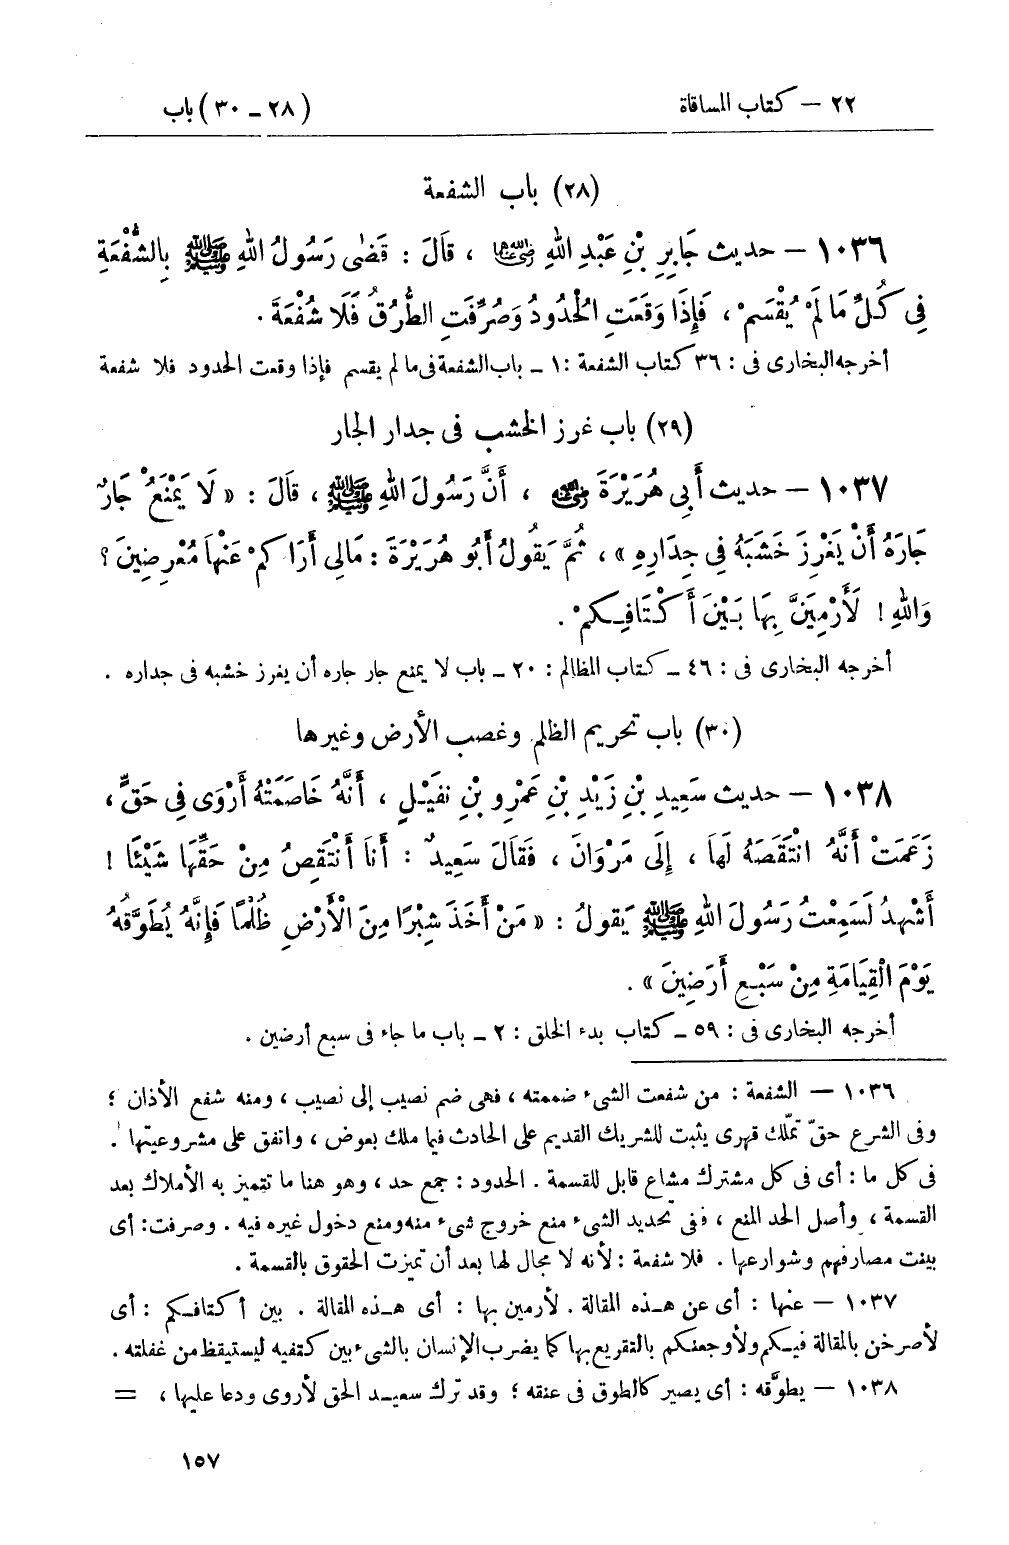 ٢٢ – كتاب المساقاة (٢٨ – ٣٠) باب
(٢٨) باب الشفعة
١٠٣٦ – حديث جَابِرِ بْنِ عَبْدِ اللهِ رضي الله عنهما ، قَالَ : قَضَى رَسُولُ اللهِ ﷺ بِالشُّفْعَةِ
فِي كُلِّ مَا لَمْ يُقْسَمْ ، فَإِذَا وَقَعَتِ الْحُدُودُ وَصُرِّفَتِ الطُّرُقُ فَلَا شُفْعَةَ .
أخرجه البخارى فى : ٣٦ كتاب الشفعة : ١ – باب الشفعة فى ما لم يقسم فإذا وقعت الحدود فلا شفعة
(٢٩) باب غرز الخشب فى جدار الجار
١٠٣٧ – حديث أَبِي هُرَيْرَةَ رضي الله عنه ، أَنَّ رَسُولَ اللهِ ﷺ ، قَالَ : « لَا يَمْنَعُ جَارٌ
جَارَهُ أَنْ يَغْرِزَ خَشَبَهُ فِي جِدَارِهِ » ، ثُمَّ يَقُولُ أَبُو هُرَيْرَةَ : مَالِي أَرَاكُمْ عَنْهَا مُعْرِضِينَ ؟
وَاللهِ ! لَأَرْمِيَنَّ بِهَا بَيْنَ أَكْتَافِكُمْ .
أخرجه البخارى فى : ٤٦ – كتاب المظالم : ٢٠ – باب لا يمنع جار جاره أن يغرز خشبه فى جداره .
(٣٠) باب تحريم الظلم وغصب الأرض وغيرها
١٠٣٨ – حديث سَعِيدِ بْنِ زَيْدِ بْنِ عَمْرِو بْنِ نفَيْلٍ ، أَنَّهُ خَاصَمَتْهُ أَرْوَى فِي حَقٍّ ،
زَعَمَتْ أَنَّهُ انْتَقَصَهُ لَهَا ، إِلَى مَرْوَانَ ، فَقَالَ سَعِيدٌ : أَنَا أَنْتَقِصُ مِنْ حَقِّهَا شَيْئًا !
أَشْهَدُ لَسَمِعْتُ رَسُولَ اللهِ ﷺ يَقُولُ : « مَنْ أَخَذَ شِبْرًا مِنَ الْأَرْضِ ظُلْمًا فَإِنَّهُ يُطَوَّقُهُ
يَوْمَ الْقِيَامَةِ مِنْ سَبْعِ أَرَضِينَ » .
أخرجه البخارى فى : ٥٩ – كتاب بدء الخلق : ٢ – باب ما جاء فى سبع أرضين .
١٠٣٦ – الشفعة : من شفعت الشىء ضممته ، فهى ضم نصيب إلى نصيب ، ومنه شفع الأذان ؛
وفى الشرع حقّ تملّك قهرى يثبت للشريك القديم على الحادث فيما ملك بعوض ، واتفق على مشروعيتها .
فى كل ما : أى فى كل مشترك مشاع قابل للقسمة . الحدود : جمع حد ، وهو هنا ما تتميز به الأملاك بعد
القسمة ، وأصل الحد المنع ، ففى تحديد الشىء منع خروج شىء منه ومنع دخول غيره فيه . وصرفت : أى
بينت مصارفهم وشوارعها . فلا شفعة : لأنه لا مجال لها بعد أن تميزت الحقوق بالقسمة .
١٠٣٧ – عنها : أى عن هذه المقالة . لأرمين بها : أى هذه المقالة . بين أكتافكم : أى
لأصرخن بالمقالة فيكم ولأوجعنكم بالتقريع بها كما يضرب الإنسان بالشىء بين كتفيه ليستيقظ من غفلته .
١٠٣٨ – يطوَّقه : أى يصير كالطوق فى عنقه ؛ وقد ترك سعيد الحق لأروى ودعا عليها ، =
١٥٧